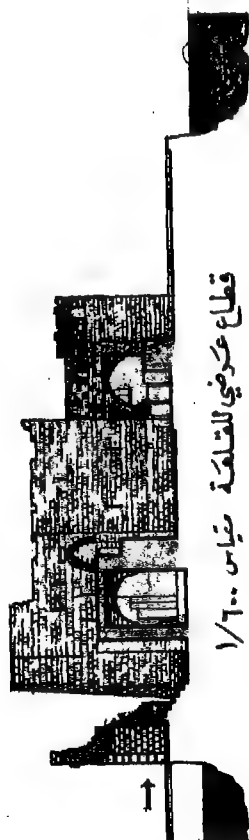 قطاع عرضي للقلعة بقياس ١/٦٠٠